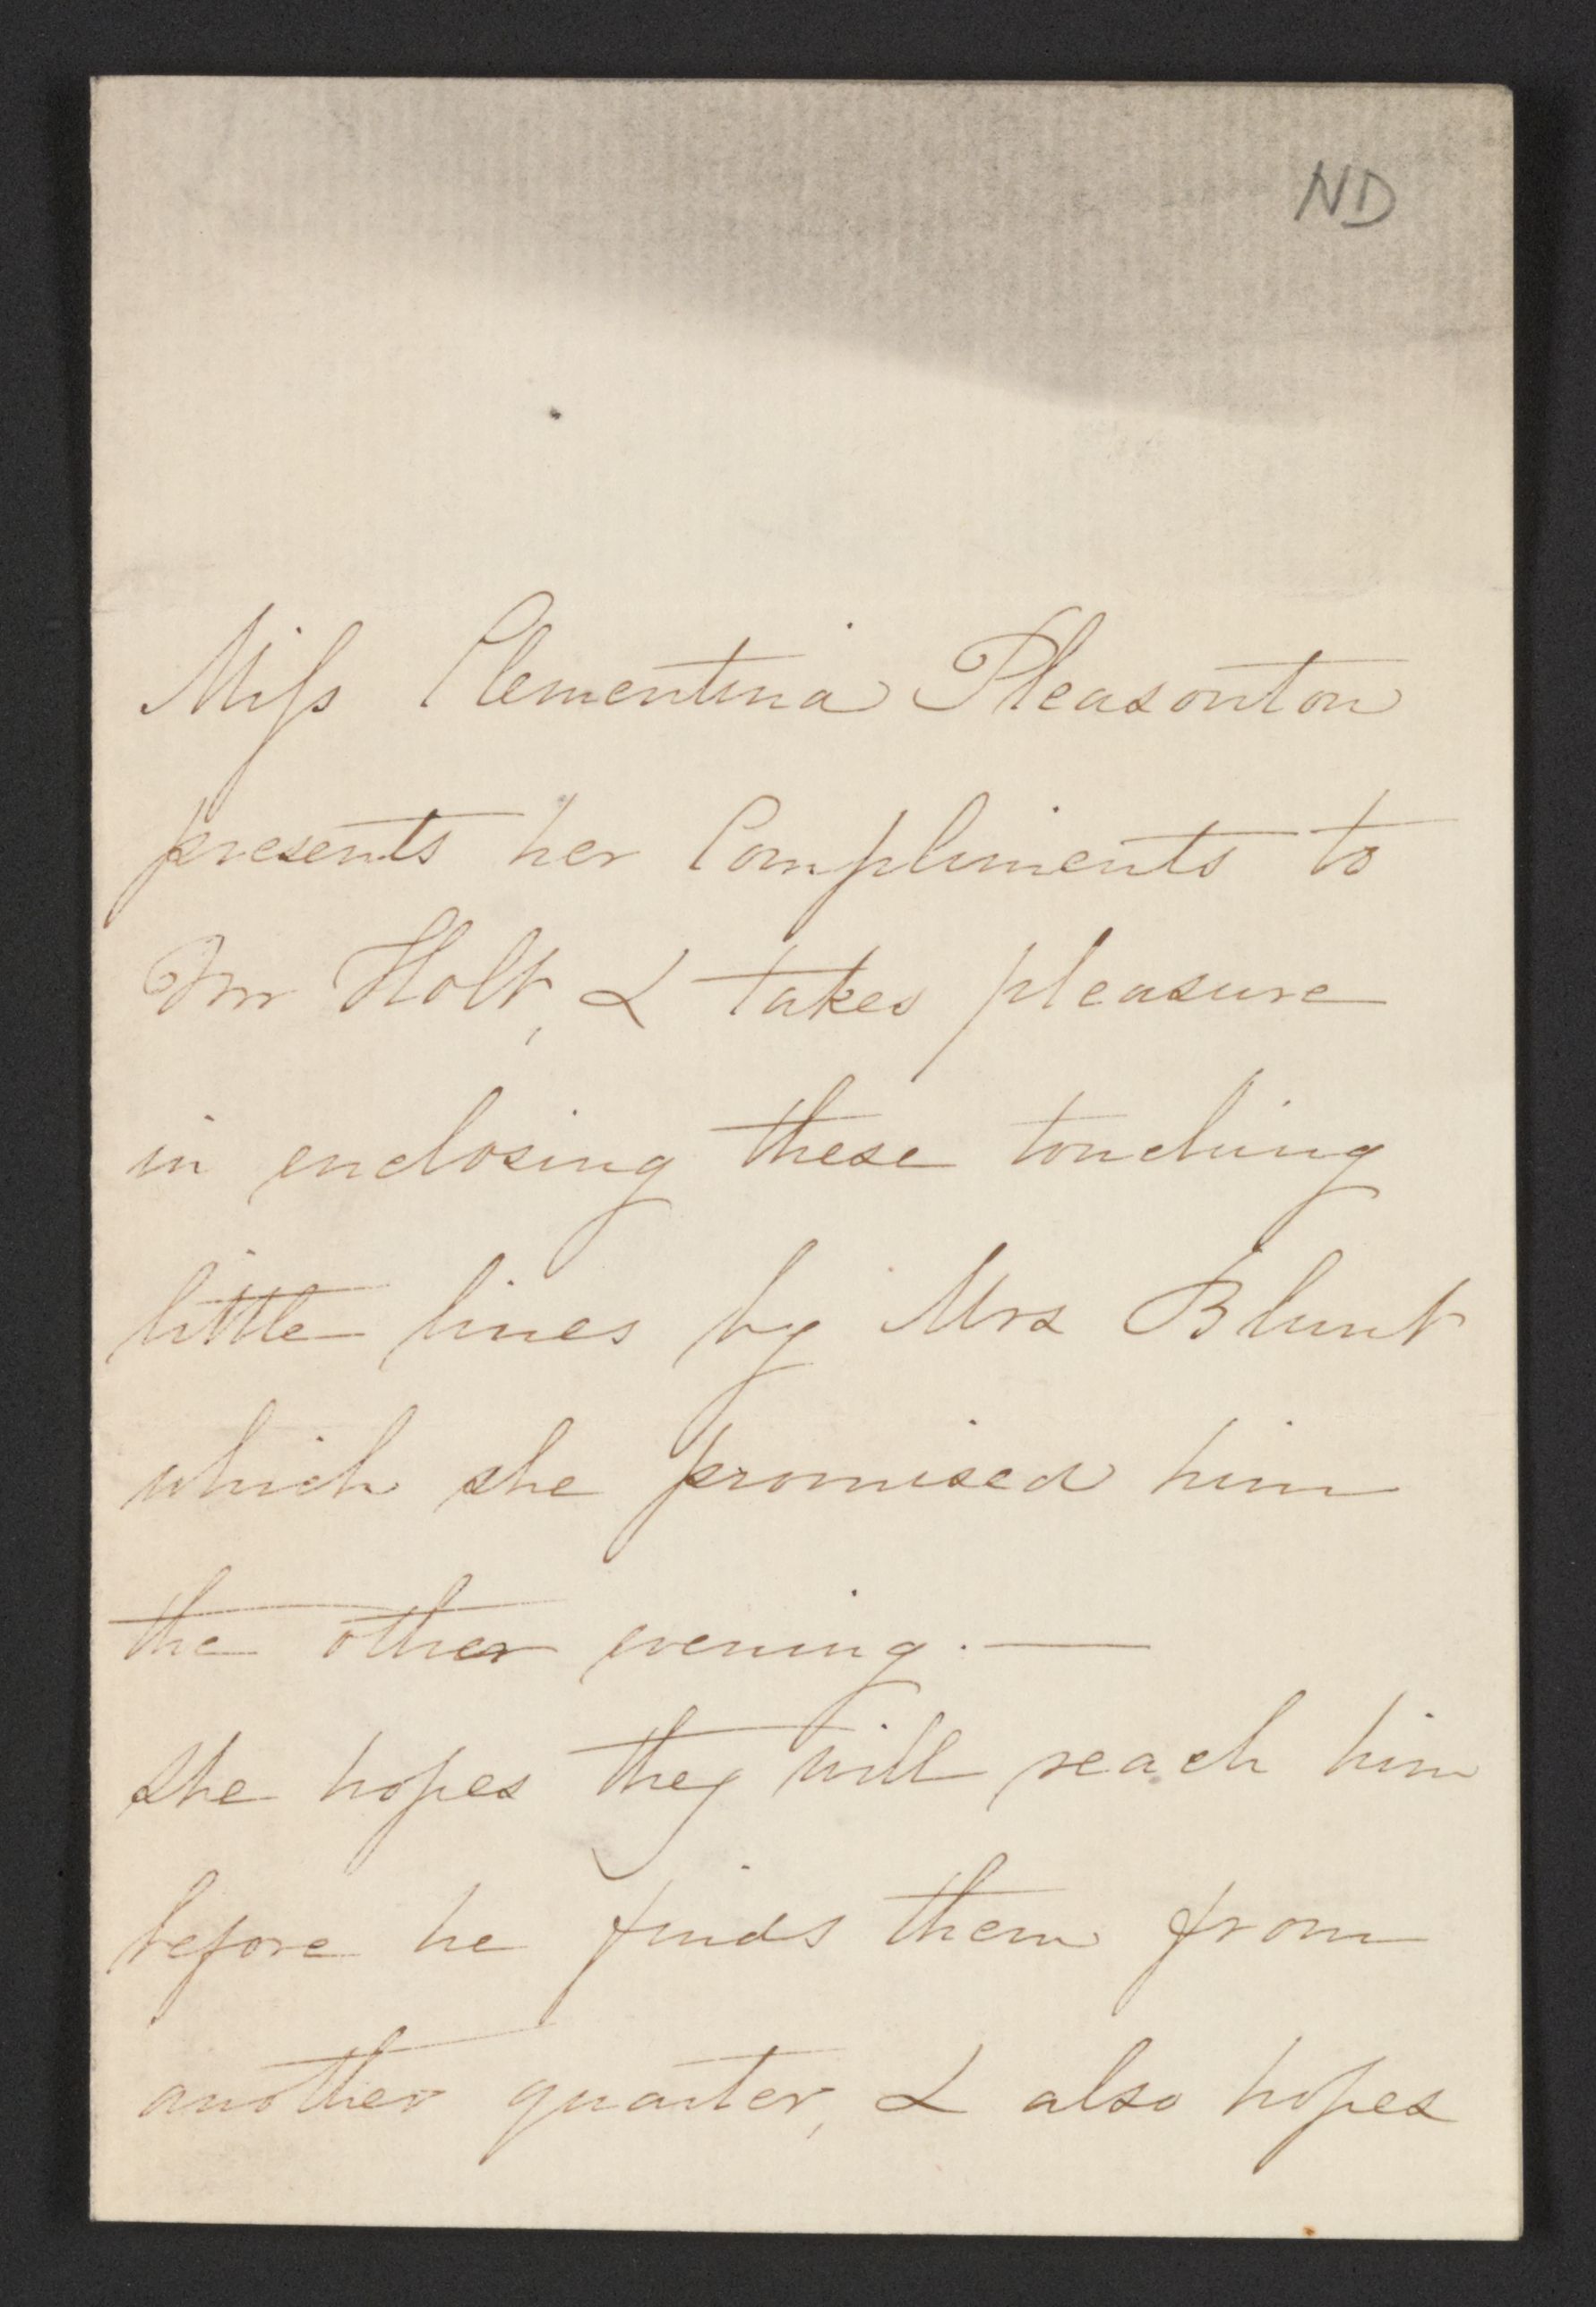 ND
Miss Clementina Pleasonton
presents her Compliments to
Mr Holt, & takes pleasure
in enclosing these touching
little lines by Mrs Blunt
which she promised him
the other evening. —
she hopes they will reach him
before he finds them from
another quarter, & also hopes